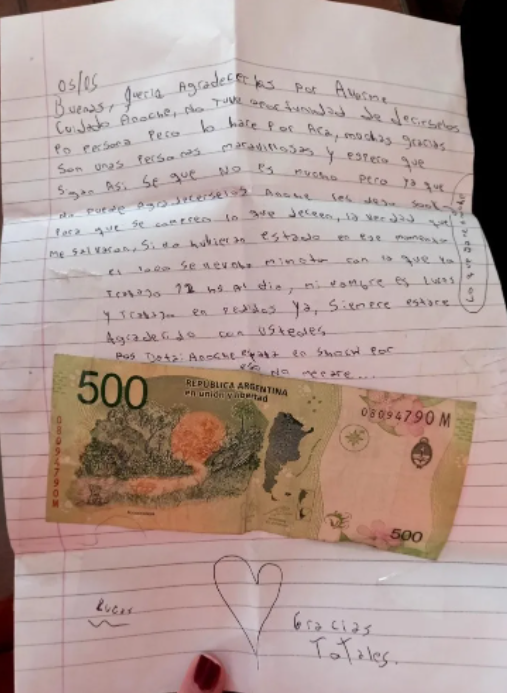 05/05
Buenas, Queria Agradecerles por Averme
Cuidado Anoche, No Tuve oportunidad de decirselos
en persona Pero lo hace Por Aca, muchas gracias
Son unas Personas maravillosas y espero que
Sigan Asi. Se que No es mucho Pero ya que
no pude agradecerselos Anoche les dejo
Para que se compren lo que deceen, la verdad que
me salvaron, Si no hubieran estado en ese momento
el loco se llevaba con la que yo
Trabajo 12 hs Al dia, mi nombre es Lucas
y Trabajo en Pedidos Ya, Siempre estare
Agradecido con ustedes
Pos Data: Anoche estaba en Shock Por
eso No
500
REPÚBLICA ARGENTINA
en unión y libertad
08094790 M
08094790 M
500
Lucas
Gracias
ToTales.